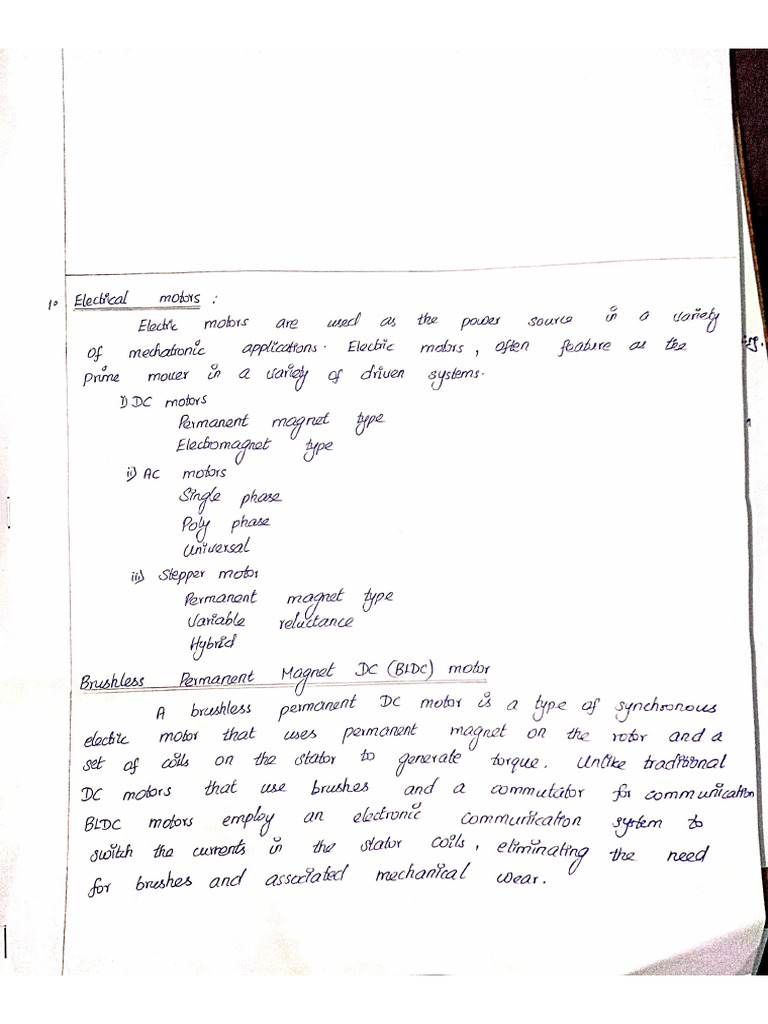 1. Electrical motors :
Electric motors are used as the power source in a variety
of mechatronic applications. Electric motors, often feature as the
prime mover in a variety of driven systems.
i) DC motors
Permanent magnet type
Electromagnet type
ii) AC motors
Single phase
Poly phase
Universal
iii) Stepper motor
Permanent magnet type
Variable reluctance
Hybrid
Brushless Permanent Magnet DC (BLDC) motor
A brushless permanent DC motor is a type of synchronous
electric motor that uses permanent magnet on the rotor and a
set of coils on the stator to generate torque. Unlike traditional
DC motors that use brushes and a commutator for communication
BLDC motors employ an electronic communication system to
switch the currents in the stator coils, eliminating the need
for brushes and associated mechanical wear.